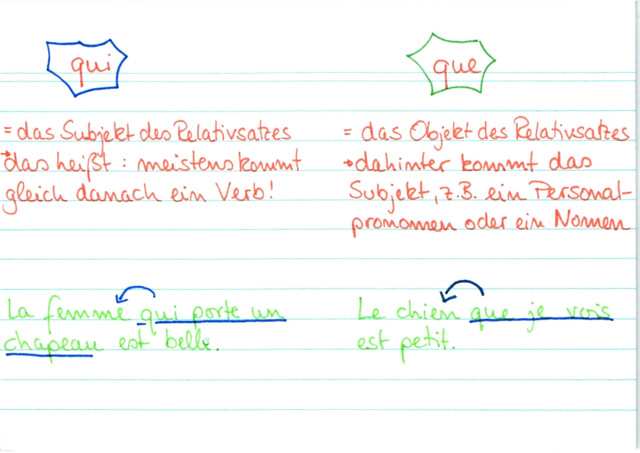 qui
= das Subjekt des Relativsatzes
→ das heißt : meistens kommt
gleich danach ein Verb!
La femme qui porte un
chapeau est belle.
que
= das Objekt des Relativsatzes
→ dahinter kommt das
Subjekt, z.B. ein Personal-
pronomen oder ein Nomen
Le chien que je vois
est petit.